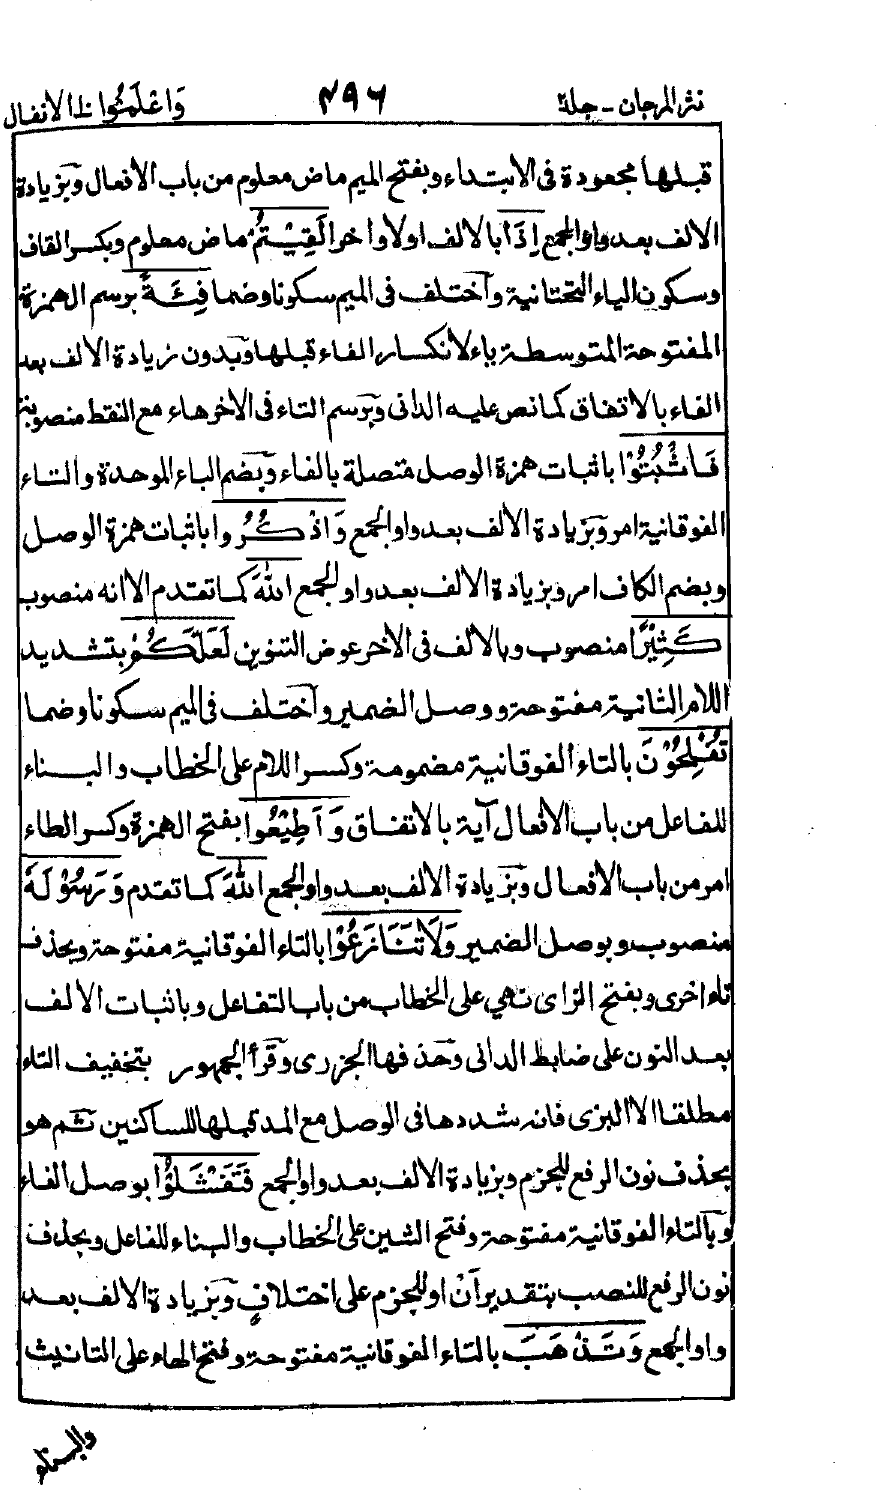 نثر المرجان - جلد٢ ٤٩٦ وَاعْلَمُوا ١٠ الانفال
قبلها مجعودة فى الابتداء وبفتح الميم ماض معلوم من باب الافعال وبزيادة
الالف بعد واو الجمع اِذَا بالالف اولا واخرا لَقِيْتُمْ ماض معلوم وبكسر القاف
وسكون الياء التحتانية واختلف فى الميم سكونا وضما فِئَةً برسم الهمزة
المفتوحة المتوسطة ياء لانكسار الفاء قبلها وبدون زيادة الالف بعد
الفاء بالاتفاق كما نص عليه الدانى وبرسم التاء فى الاخر هاء مع النقط منصوبة
فَاثْبُتُوْا باثبات همزة الوصل متصلة بالفاء وبضم الباء الموحدة والتاء
الفوقانية امر وبزيادة الالف بعد واو الجمع وَاذْكُرُوا باثبات همزة الوصل
وبضم الكاف امر وبزيادة الالف بعد واو الجمع اللّٰهَ كما تقدم الا انه منصوب
كَثِيْرًا منصوب وبالالف فى الاخر عوض التنوين لَعَلَّكُمْ بتشديد
اللام الثانية مفتوحة ووصل الضمير واختلف فى الميم سكونا وضما
تُفْلِحُوْنَ بالتاء الفوقانية مضمومة وكسر اللام على الخطاب والبناء
للفاعل من باب الافعال آية بالاتفاق وَاَطِيْعُوا بفتح الهمزة وكسر الطاء
امر من باب الافعال وبزيادة الالف بعد واو الجمع اللّٰهَ كما تقدم وَرَسُوْلَهٗ
منصوب وبوصل الضمير وَلَا تَنَازَعُوْا بالتاء الفوقانية مفتوحة وبحذف
تاء اخرى وبفتح الزاى نهي على الخطاب من باب التفاعل وباثبات الالف
بعد النون على ضابط الدانى وحذفها الجزرى وقرأ الجمهور بتخفيف التاء
مطلقا الا البزى فانه شددها فى الوصل مع المد قبلها للساكنين ثم هو
بحذف نون الرفع للجزم وبزيادة الالف بعد واو الجمع فَتَفْشَلُوْا بوصل الفاء
وبالتاء الفوقانية مفتوحة وفتح الشين على الخطاب والبناء للفاعل وبحذف
نون الرفع للنصب بتقدير اَنْ او للجزم على اختلافٍ وبزيادة الالف بعد
واو الجمع وَتَذْهَبَ بالتاء الفوقانية مفتوحة وفتح الهاء على التانيث
والبناء